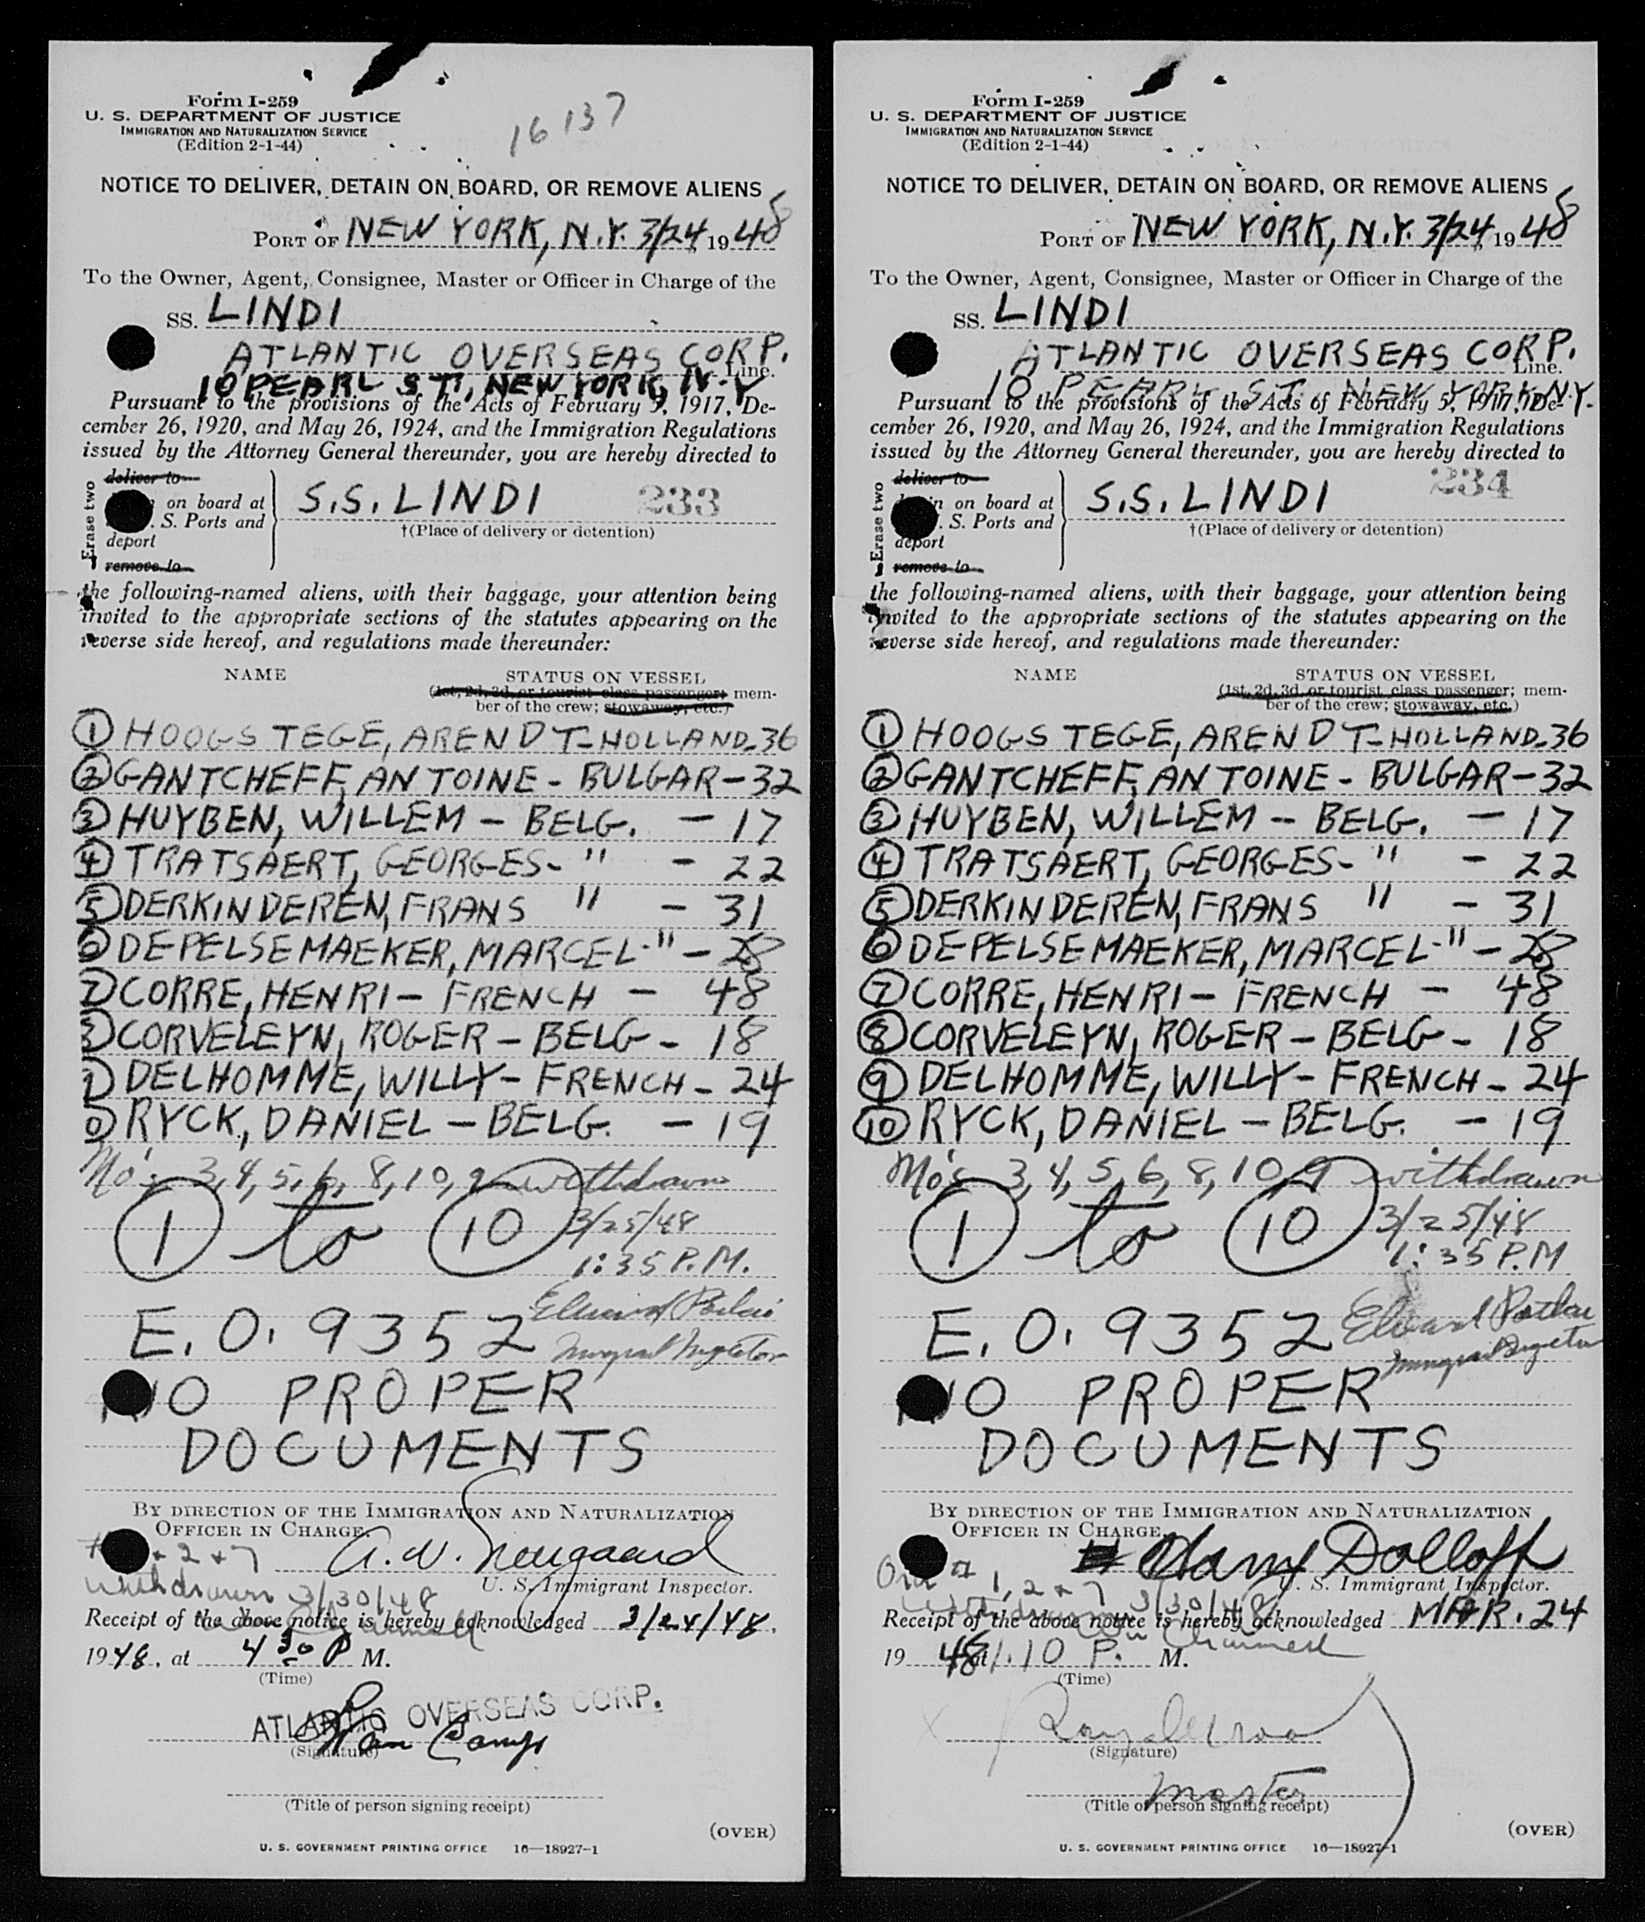 Form I-259
U. S. DEPARTMENT OF JUSTICE
IMMIGRATION AND NATURALIZATION SERVICE
(Edition 2-1-44)
16137
NOTICE TO DELIVER, DETAIN ON BOARD, OR REMOVE ALIENS
PORT OF NEW YORK, N.Y. 3/24, 1948
To the Owner, Agent, Consignee, Master or Officer in Charge of the
SS. LINDI
ATLANTIC OVERSEAS CORP. Line.
10 PEARL ST., NEW YORK, N.Y
Pursuant to the provisions of the Acts of February 5, 1917, De-
cember 26, 1920, and May 26, 1924, and the Immigration Regulations
issued by the Attorney General thereunder, you are hereby directed to
Erase two
deliver to
on board at
. S. Ports and
deport
remove to
S.S. LINDI 233
†(Place of delivery or detention)
the following-named aliens, with their baggage, your attention being
invited to the appropriate sections of the statutes appearing on the
reverse side hereof, and regulations made thereunder:
NAME STATUS ON VESSEL
(1st, 2d, 3d, or tourist class passenger; mem-
ber of the crew; stowaway, etc.)
1 HOOGSTEGE, ARENDT-HOLLAND-36
2 GANTCHEFF, ANTOINE - BULGAR - 32
3 HUYBEN, WILLEM - BELG. - 17
4 TRATSAERT, GEORGES - " - 22
5 DERKINDEREN, FRANS " - 31
6 DEPELSEMAEKER, MARCEL - " - 28
7 CORRE, HENRI - FRENCH - 48
8 CORVELEYN, ROGER - BELG - 18
9 DELHOMME, WILLY - FRENCH - 24
10 RYCK, DANIEL - BELG. - 19
No's 3, 4, 5, 6, 8, 10, 9 withdrawn
1 to 10 3/25/48
1:35 P.M.
E.O. 9352
NO PROPER
DOCUMENTS
BY DIRECTION OF THE IMMIGRATION AND NATURALIZATION
OFFICER IN CHARGE
+ 2 + 7
withdrawn 3/30/48
U. S. Immigrant Inspector.
Receipt of the above notice is hereby acknowledged 3/24/48.
1948, at 4 30 P M.
(Time)
ATLANTIC OVERSEAS CORP.
(Signature)
(Title of person signing receipt)
(OVER)
U. S. GOVERNMENT PRINTING OFFICE 16—18927-1
Form I-259
U. S. DEPARTMENT OF JUSTICE
IMMIGRATION AND NATURALIZATION SERVICE
(Edition 2-1-44)
NOTICE TO DELIVER, DETAIN ON BOARD, OR REMOVE ALIENS
PORT OF NEW YORK, N.Y. 3/24, 1948
To the Owner, Agent, Consignee, Master or Officer in Charge of the
SS. LINDI
ATLANTIC OVERSEAS CORP. Line.
10 PEARL ST. NEW YORK N.Y.
Pursuant to the provisions of the Acts of February 5, 1917, De-
cember 26, 1920, and May 26, 1924, and the Immigration Regulations
issued by the Attorney General thereunder, you are hereby directed to
Erase two
deliver to
on board at
. S. Ports and
deport
remove to
S.S. LINDI 234
†(Place of delivery or detention)
the following-named aliens, with their baggage, your attention being
invited to the appropriate sections of the statutes appearing on the
reverse side hereof, and regulations made thereunder:
NAME STATUS ON VESSEL
(1st, 2d, 3d, or tourist class passenger; mem-
ber of the crew; stowaway, etc.)
1 HOOGSTEGE, ARENDT-HOLLAND-36
2 GANTCHEFF, ANTOINE - BULGAR - 32
3 HUYBEN, WILLEM - BELG. - 17
4 TRATSAERT, GEORGES - " - 22
5 DERKINDEREN, FRANS " - 31
6 DEPELSEMAEKER, MARCEL - " - 28
7 CORRE, HENRI - FRENCH - 48
8 CORVELEYN, ROGER - BELG - 18
9 DELHOMME, WILLY - FRENCH - 24
10 RYCK, DANIEL - BELG. - 19
No's 3, 4, 5, 6, 8, 10, 9 withdrawn
1 to 10 3/25/48
1:35 P.M
E.O. 9352
NO PROPER
DOCUMENTS
BY DIRECTION OF THE IMMIGRATION AND NATURALIZATION
OFFICER IN CHARGE
Harry Dolloff
1, 2 + 7 3/30/48
U. S. Immigrant Inspector.
Receipt of the above notice is hereby acknowledged MAR. 24
1948 at 1.10 P. M.
(Time)
(Signature)
Master
(Title of person signing receipt)
(OVER)
U. S. GOVERNMENT PRINTING OFFICE 16—18927-1